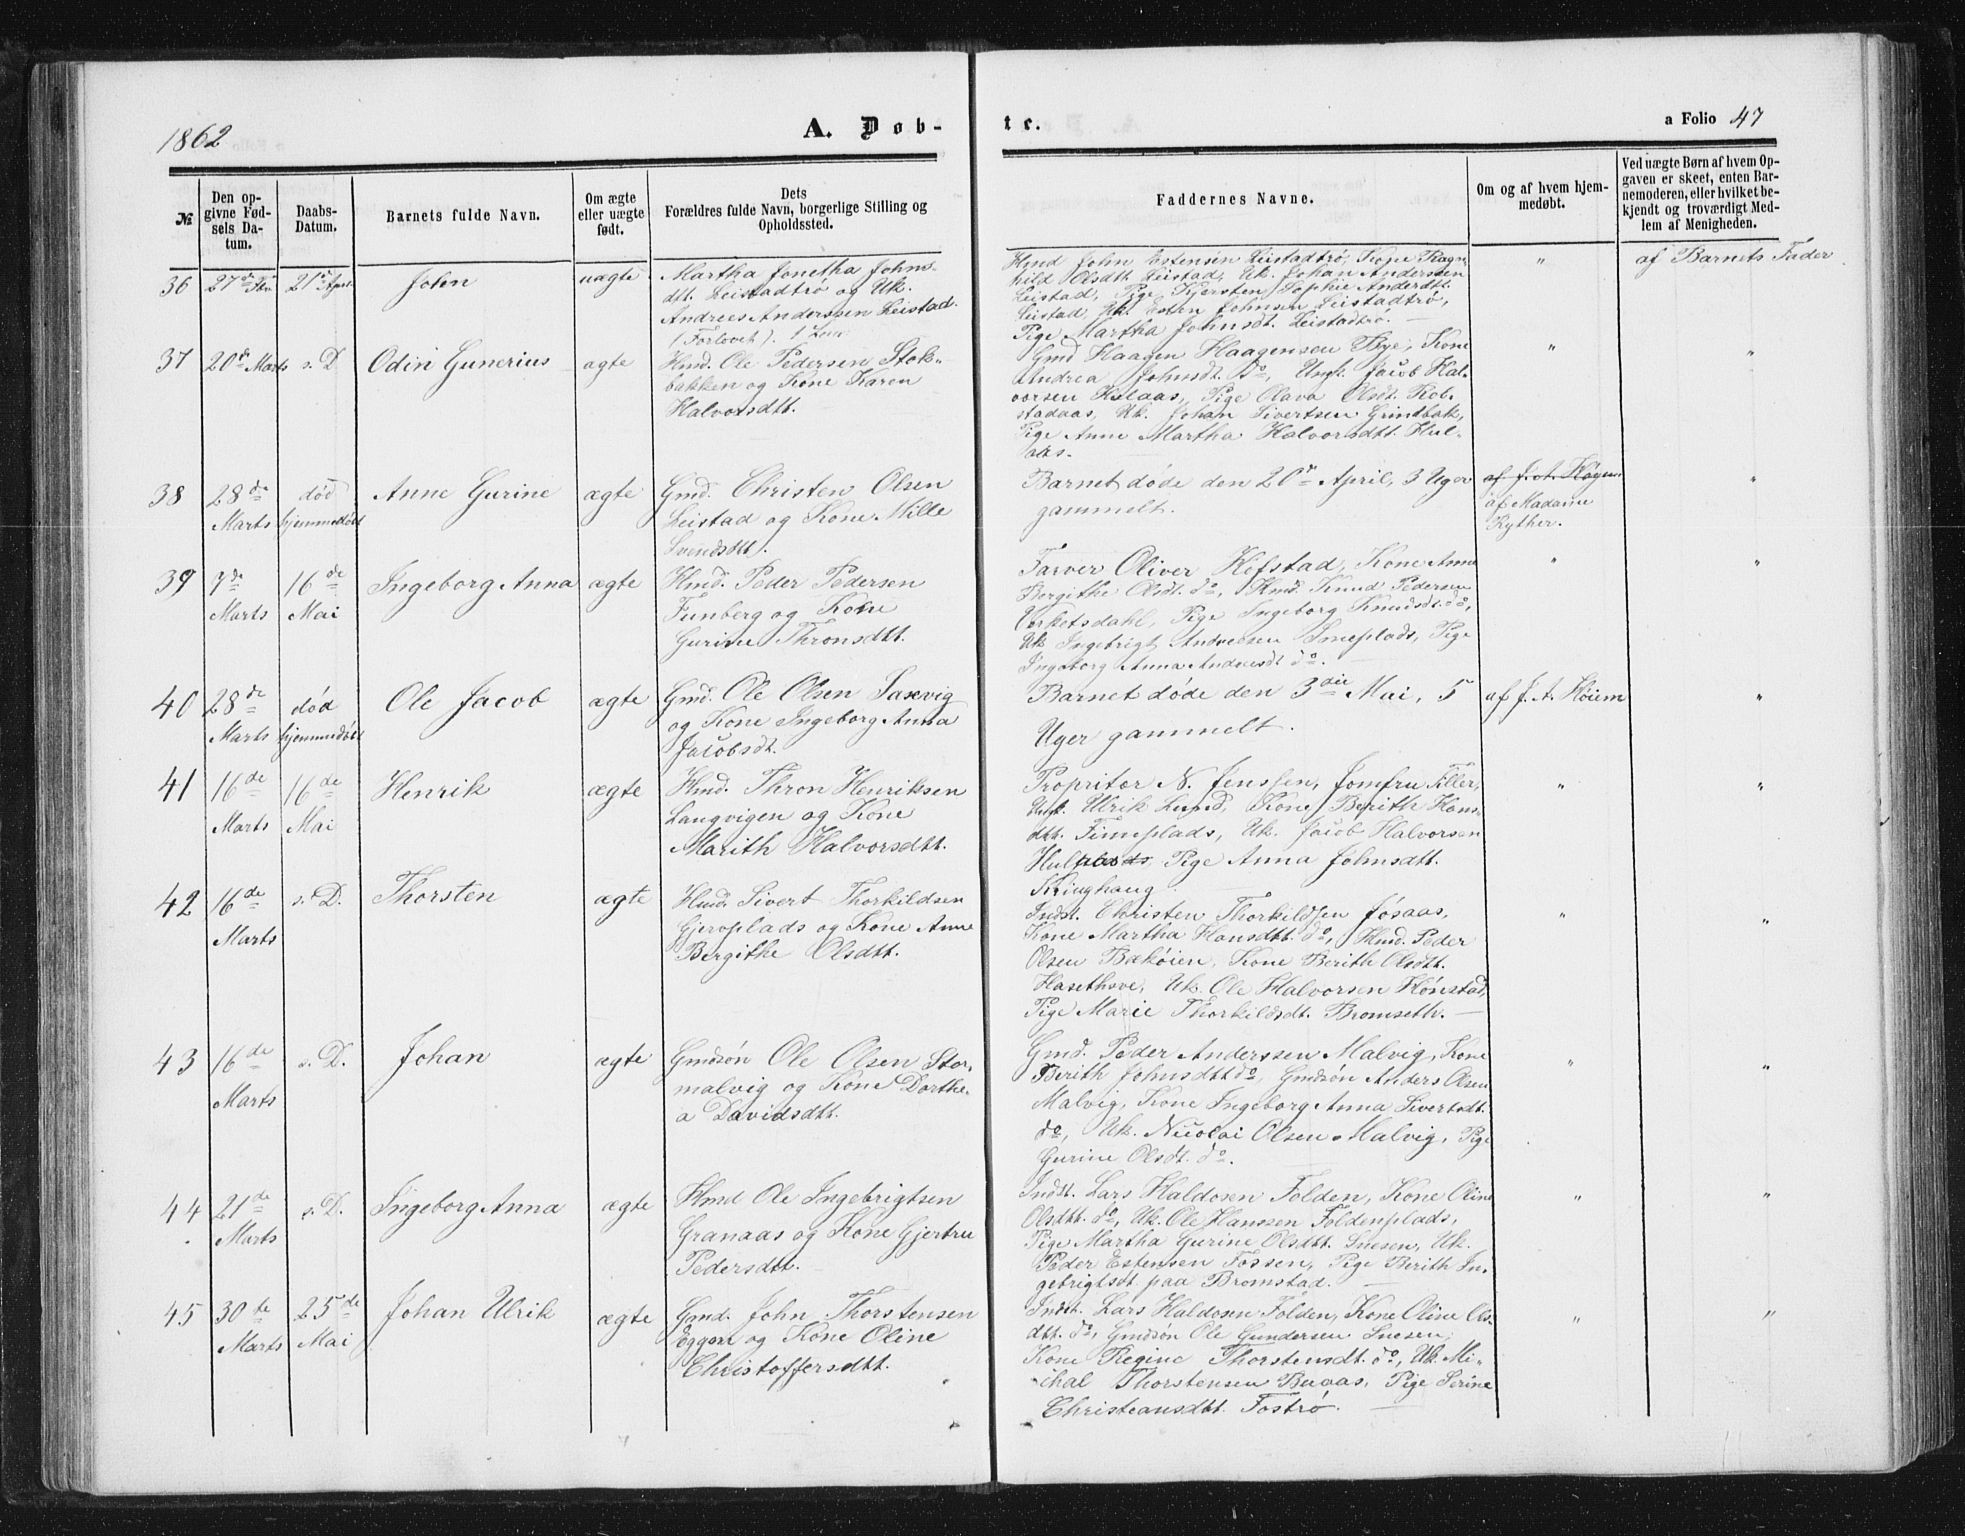 1862
A. Døb-
te.
a Folio 47
№
Den op-
givne Fød-
sels Da-
tum.
Daabs-
Datum.
Barnets fulde Navn.
Om ægte
eller uægte
født.
Dets
Forældres fulde Navn, borgerlige Stilling og
Opholdssted.
Faddernes Navne.
Om og af hvem hjem-
medøbt.
Ved uægte Børn af hvem Op-
gaven er skeet, enten Bar-
nemoderen, eller hvilket be-
kjendt og troværdigt Med-
lem af Menigheden.
36 27de Feb 21de April John uægte
Martha Jonetha Johns-
dtt. Leistadtrø og Uk.
Andreas Anderssen Leistad.
(Forlovet).
Hmd John Estensen Leistadtrø, Kone Ragn-
hild Olsdtt. Leistad, Uk. Johan Anderssen
Leistad, Pige Kjersten Sophie Andersdtt.
Leistad, Uk. Esten Johnsen Leistadtrø,
Pige Martha Johnsdt. Leistadtrø.
"
af Barnets Fader
37 20de Marts s. D. Odin Gunerius ægte
Hmd. Ole Pedersen Stok-
bakken og Kone Karen
Halvorsdtt.
Gmd Haagen Haagensen Bye, Kone
Andrea Johnsdt. do, Jacob Hal-
vorsen Hulaas, Pige Olava Olsdt.
Uk. Johan Sivertsen Grindbak,
Pige Anne Martha Halvorsdtt. Hul-
aas.
" "
38 28de Marts død hjemmedøbt Anne Gurine ægte
Gmd. Christen Olsen
Leistad og Kone Milde
Svendsdtt.
Barnet døde den 20de April, 3 Uger
gammelt.
af Madame
Ryther.
"
39 7de Marts 16de Mai Ingeborg Anna ægte
Hmd. Peder Pedersen
Funberg og Kone
Gurine Thronsdtt.
Farver Oliver Hofstad, Kone Anne
Bergithe Olsdt. do, Hmd. Knud Pedersen
Pige Ingeborg Knudsdt. do,
Uk Ingebrigt Andreasen Pige
Ingeborg Anna Andreasdt do.
" "
40 28de Marts død hjemmedøbt Ole Jacob ægte
Gmd. Ole Olsen Saxvig
og Kone Ingeborg Anna
Jacobsdt.
Barnet døde den 3die Mai, 5
Uger gammelt.
af J. A. Høiem
"
41 16de Marts 16de Mai Henrik ægte
Hmd. Thron Henriksen
Langvigen og Kone
Marith Halvorsdtt.
Propritær N. Jenssen, Jomfru Tiller,
Ulrik Lund, Kone Berith Hans-
dtt. Uk. Jacob Halvorsen
Pige Anna Johnsdtt.
Kringhaug.
" "
42 16de Marts s. D. Thorsten ægte
Hmd. Sivert Thorkildsen
Gjervplads og Kone Anne
Bergithe Olsdtt.
Indst. Christen Thorkildsen Jøsaas,
Kone Martha Hansdtt. do, Hmd. Peder
Olsen Bakøien, Kone Berith Olsdtt.
Uk. Ole Halvorsen Hønstad,
Pige Marie Thorkildsdt. Bromseth.
" "
43 16de Marts s. D. Johan ægte
Gmdsøn Ole Olsen Stor-
malvig og Kone Dorthe-
a Davidsdtt.
Gmd. Peder Anderssen Malvig, Kone
Berith Johnsdtt do, Gmdsøn Anders Olsen
Malvig, Kone Ingeborg Anna Sivertsdt.
do, Uk. Nicolai Olsen Malvig, Pige
Gurine Olsdt. do.
" "
44 21de Marts s. D. Ingeborg Anna ægte
Hmd Ole Ingebrigtsen
Granaas og Kone Gjertru
Pedersdtt.
Indst. Lars Haldosen Folden, Kone Oline
Olsdtt. do, Uk. Ole Hanssen Foldenplads,
Pige Martha Gurine Olsdtt. Snesen, Uk.
Peder Estensen Fossen, Pige Berith In-
gebrigtsdt. paa Bromstad.
" "
45 30te Marts 25de Mai Johan Ulrik ægte
Gmd. John Thorstensen
Eggen og Kone Oline
Christoffersdtt.
Indst. Lars Haldosen Folden, Kone Oline Ols-
dtt. do, Gmdsøn Ole Gundersen Snesen,
Kone Regine Thorstensdt. do, Uk. Mi-
chal Thorstensen Buaas, Pige Serine
Christeansdtt. Fostrø.
" "